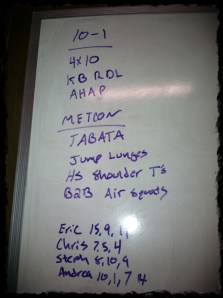 10-1
4x10
KB RDL
AHAP
METCON
TABATA
Jump Lunges
HS Shoulder T's
B2B Air Squads
Eric 15, 9, 11
Chris 7.5, 4
Steph 8, 10, 9
Andrea 10, 1, 7